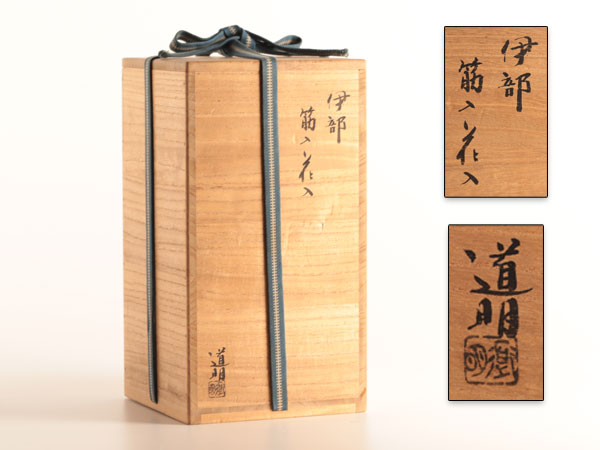 伊部
筋入花入
道明
伊部
筋入花入
道明